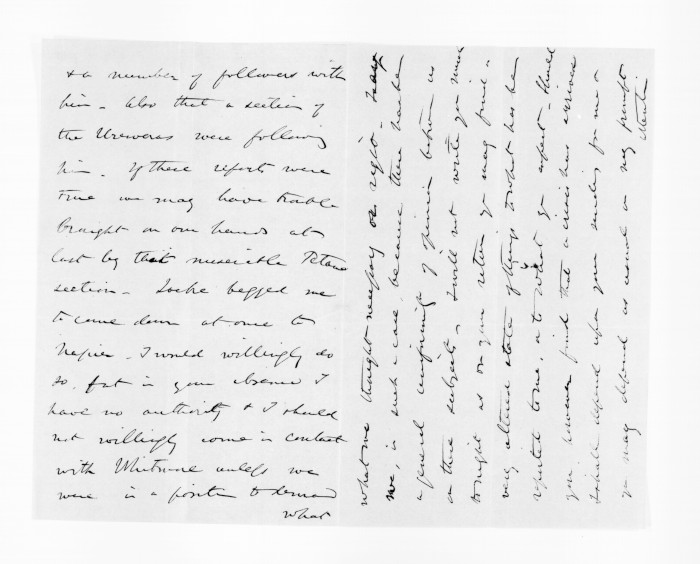 & a number of followers with
him - Also that a section of
the Ureweras were following
him. If these reports were
true we may have trouble
brought on our hands at
last by that miserable Petane
section - Locke begged me
to come down at once to
Napier. I would willingly do
so, but in your absence I
have no authority & I should
not willingly come in contact
with unless we
were in a position to demand
what
what we thought necessary or right -
we, in such a case, because there has been
a general uniformity of opinion between us
on these subjects - I will not write you much
tonight as on your return you may find a
very altered state of things to what has been
reported to me, or to what you expect - Should
you however find that a crisis has arrived
I shall depend upon your sending for me &
you may depend as usual on my prompt